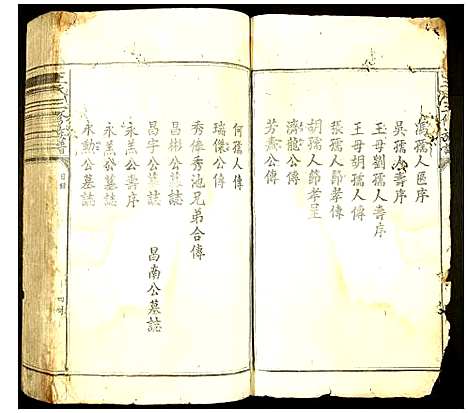 馮孺人區序
吳孺人壽序
王母劉孺人壽序
王母胡孺人傳
張孺人節孝傳
胡孺人節孝呈
濟龍公傳
芳燾公傳
何孺人傳
瑞傑公傳
秀俸秀池兄弟合傳
昌彬公墓誌
昌宇公墓誌
昌南公墓誌
永羔公壽序
永羔公墓誌
永動公墓誌
目録